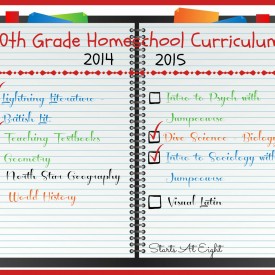 0th Grade Homeschool Curriculum
2014 2015
Lightning Literature -
British Lit.
Teaching Textbooks
Geometry
North Star Geography
World History
Intro to Psych with
Jumpcourse
Dive Science - Biology
Intro to Sociology with
Jumpcourse
Visual Latin
Starts At Eight